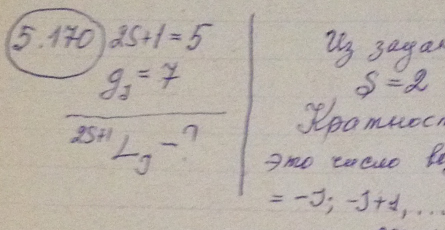 5.170 2S+1=5
g_J = 7
^{2S+1}L_J - ?
Из
S=2
это число
= -J; -J+1, ...